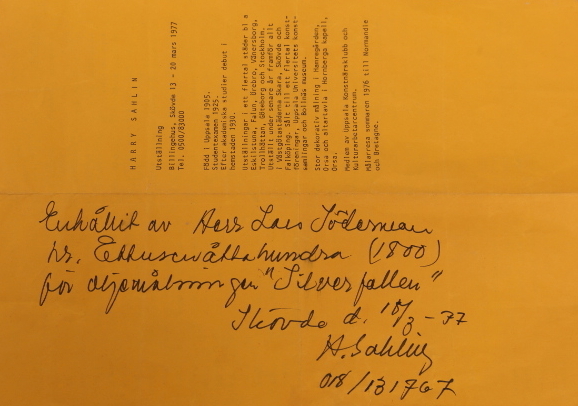 HARRY SAHLIN
Utställning
Billingehus, Skövde 13 - 20 mars 1977
Tel. 0500/83000
Född i Uppsala 1905.
Studentexamen 1925.
Efter akademiska studier debut i
hemstaden 1930.
Utställningar i ett flertal städer bl a
Eskilstuna, Falun, Örebro, Vänersborg,
Trollhättan, Göteborg och Stockholm.
Utställt under senare år framför allt
i Västgötastäderna Skara, Skövde och
Falköping. Sålt till ett flertal konst-
föreningar, Uppsala Universitets konst-
samlingar och Bollnäs museum.
Stor dekorativ målning i Hamregården,
Orsa och altartavla i Hornberga kapell,
Orsa.
Medlem av Uppsala Konstnärsklubb och
Kulturarbetarcentrum.
Målarresa sommaren 1976 till Normandie
och Bretagne.
Erhållit av Herr Lars Söderman
kr. Ettusenåttahundra (1800)
för oljemålningen "Silverfallen"
Skövde d. 18/3 - 77
H. Sahlin
018/131767